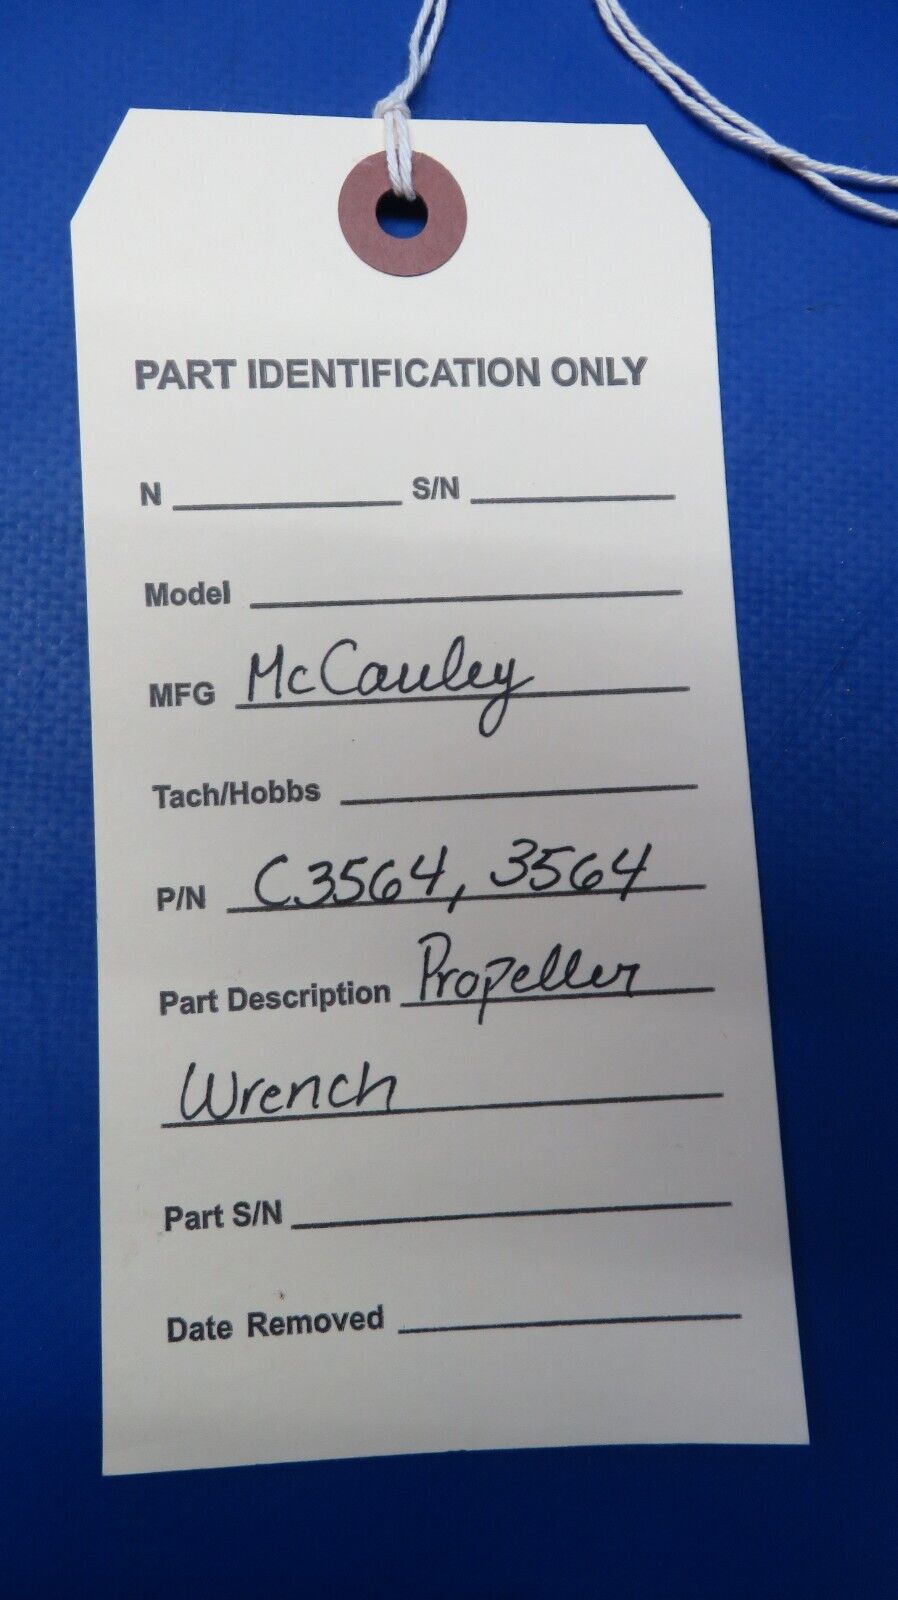 PART IDENTIFICATION ONLY
N S/N
Model
MFG McCauley
Tach/Hobbs
P/N C3564, 3564
Part Description Propeller
Wrench
Part S/N
Date Removed